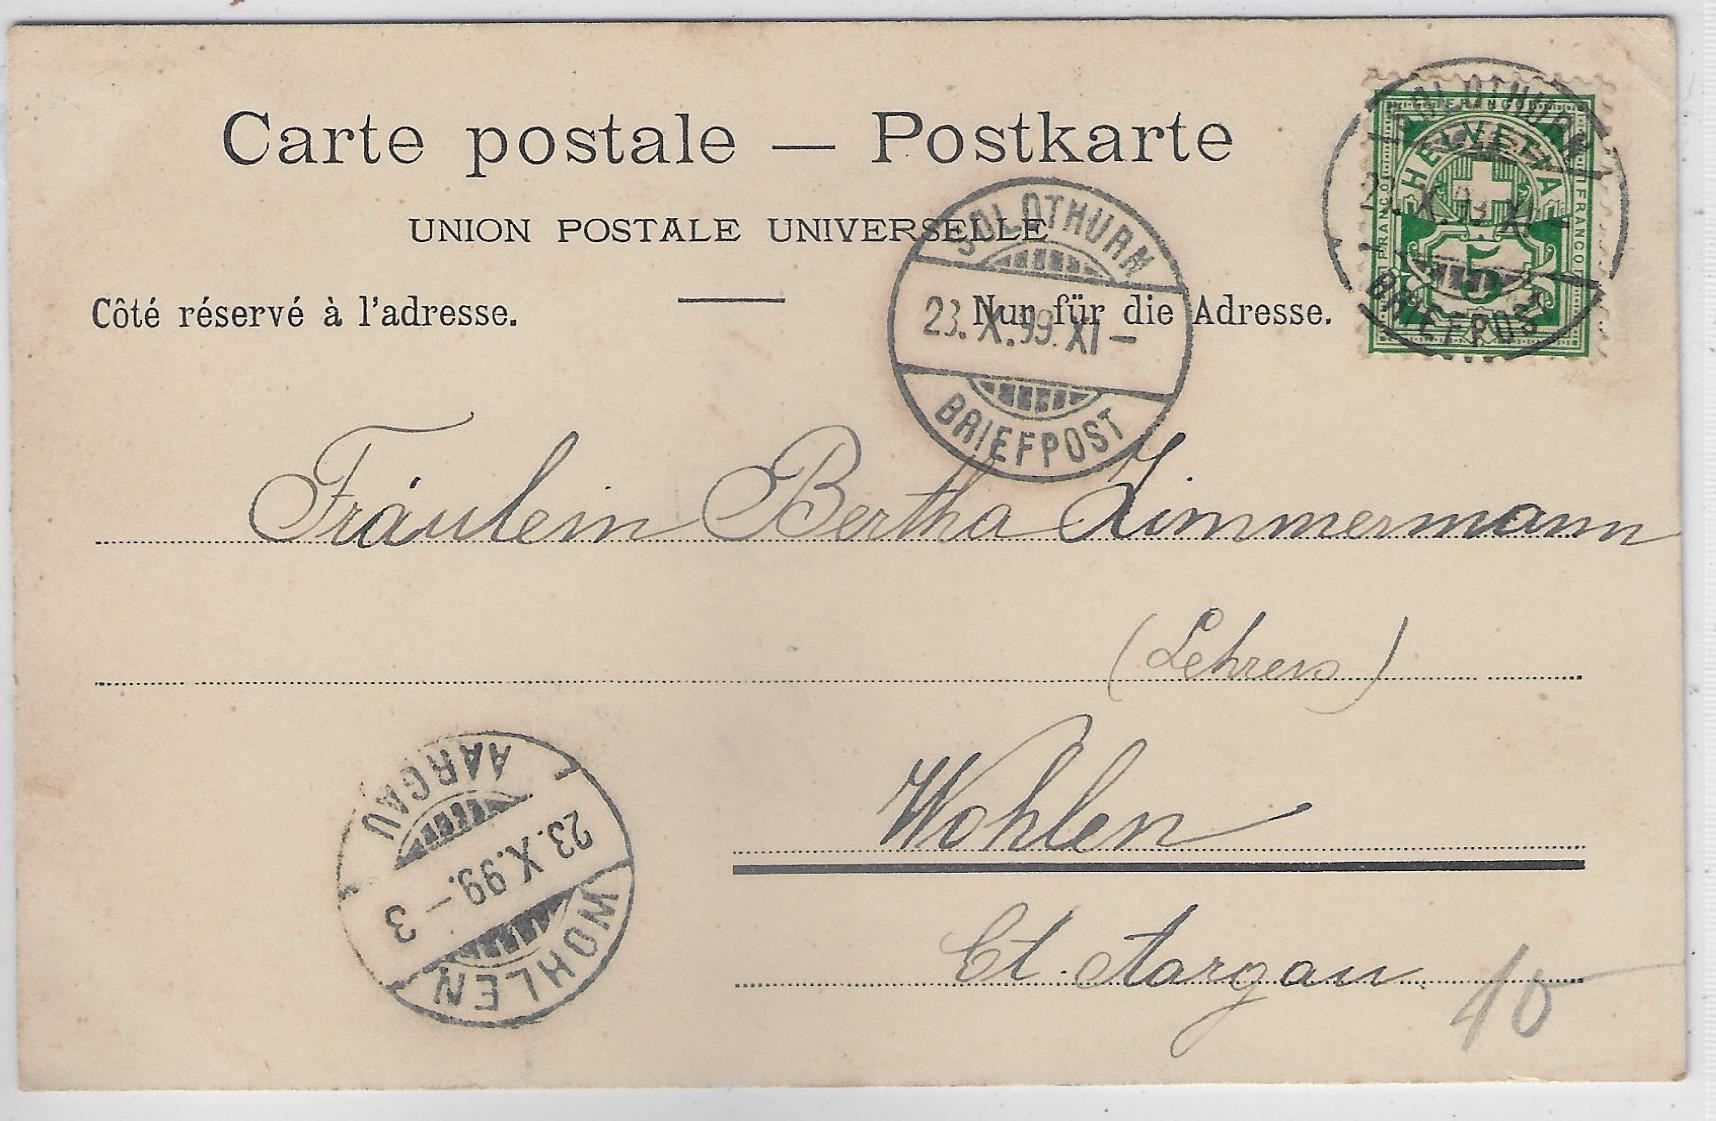 Carte postale — Postkarte
UNION POSTALE UNIVERSELLE
Côté réservé à l'adresse.
Nur für die Adresse.
SOLOTHURN
HELVETIA
FRANCO
FRANCO
23.X.99.XI–
5
BRIEFPOST
SOLOTHURN
23.X.99.XI–
BRIEFPOST
Fräulein Bertha Zimmermann
(Lehrers)
Wohlen
Ct. Aargau
10
WOHLEN
23.X.99.–3
AARGAU